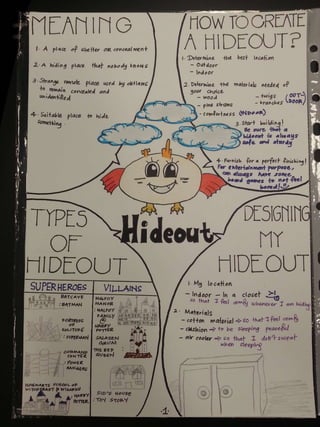 MEANING
1. A place of shelter or concealment
2. A hiding place that nobody knows
3. Strange remote place used by
to remain concealed and
unidentified
4. Suitable place to hide
something
HOW TO CREATE
A HIDEOUT?
1. Determine the best location
- Outdoor
- Indoor
2. Determine the materials needed of
your choice
- wood
- twigs
- pine straws
- branches
(OUT-
DOOR)
- comforters (INDOOR)
3. Start building!
Be sure that a
hideout is always
safe and sturdy
4. Furnish for a perfect finishing!
For entertainment purpose,
can always have some
board games to not feel
bored!
Hideout
TYPES
OF
HIDEOUT
SUPERHEROES
BATCAVE
: BATMAN
FORTRESS
OF
SOLITUDE
: SUPERMAN
COMMAND
CENTER
: POWER
RANGERS
HOGWARTS SCHOOL OF
WITCHCRAFT & WIZARDRY
: HARRY
POTTER
VILLAINS
MALFOY
MANOR
: MALFOY
FAMILY
OF
HARRY
POTTER
THE RED
QUEEN
SID'S HOUSE
: TOY STORY
DESIGNING
MY
HIDEOUT
1. My location
- Indoor - In a closet
so that I feel comfy whenever I am hiding
2. Materials
- cotton material → so that I feel comfy
- cushion → to be sleeping peaceful
- air cooler → so that I don't sweat
when sleeping
-1-